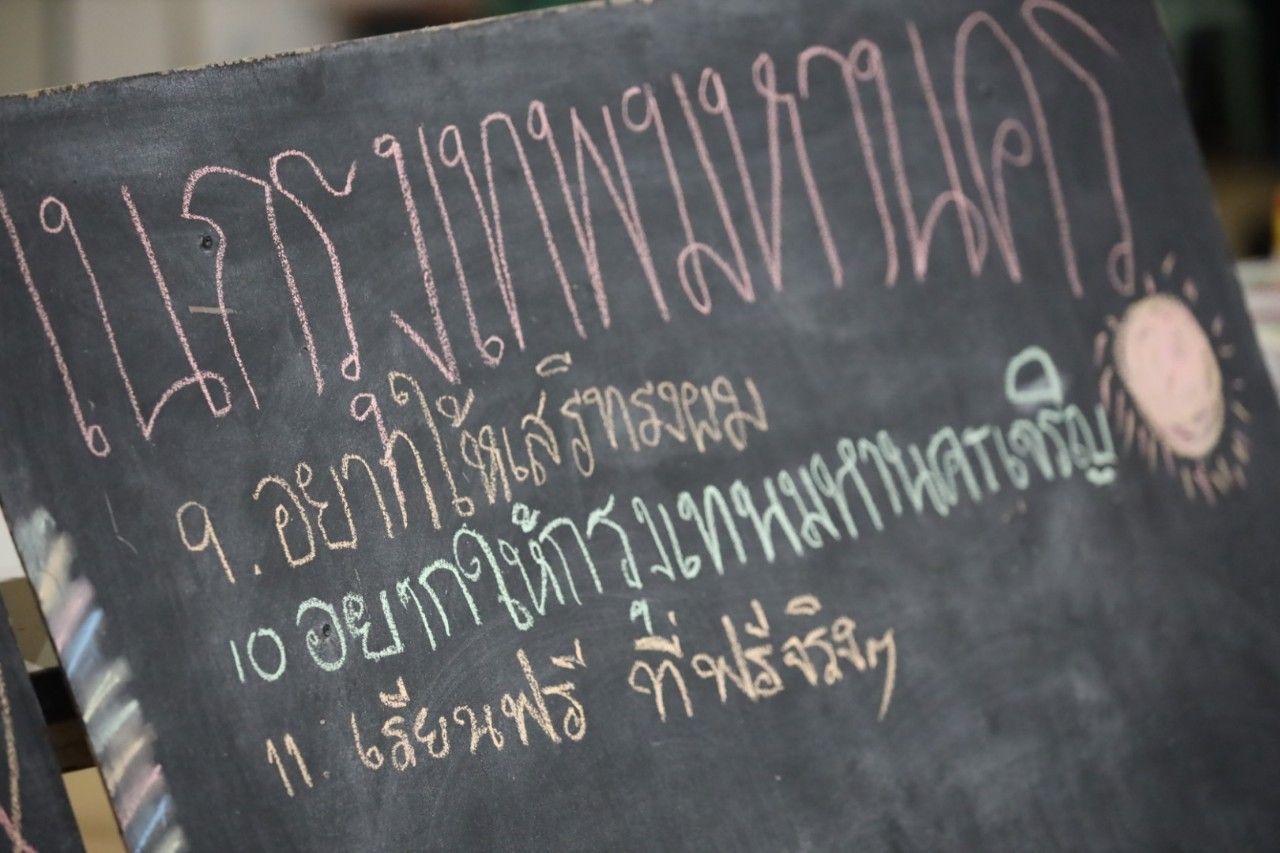 ในกรุงเทพมหานคร
9. อยากให้เสรีทรงผม
10 อยากให้กรุงเทพมหานครเจริญ
11. เรียนฟรี ที่ฟรีจริงๆ